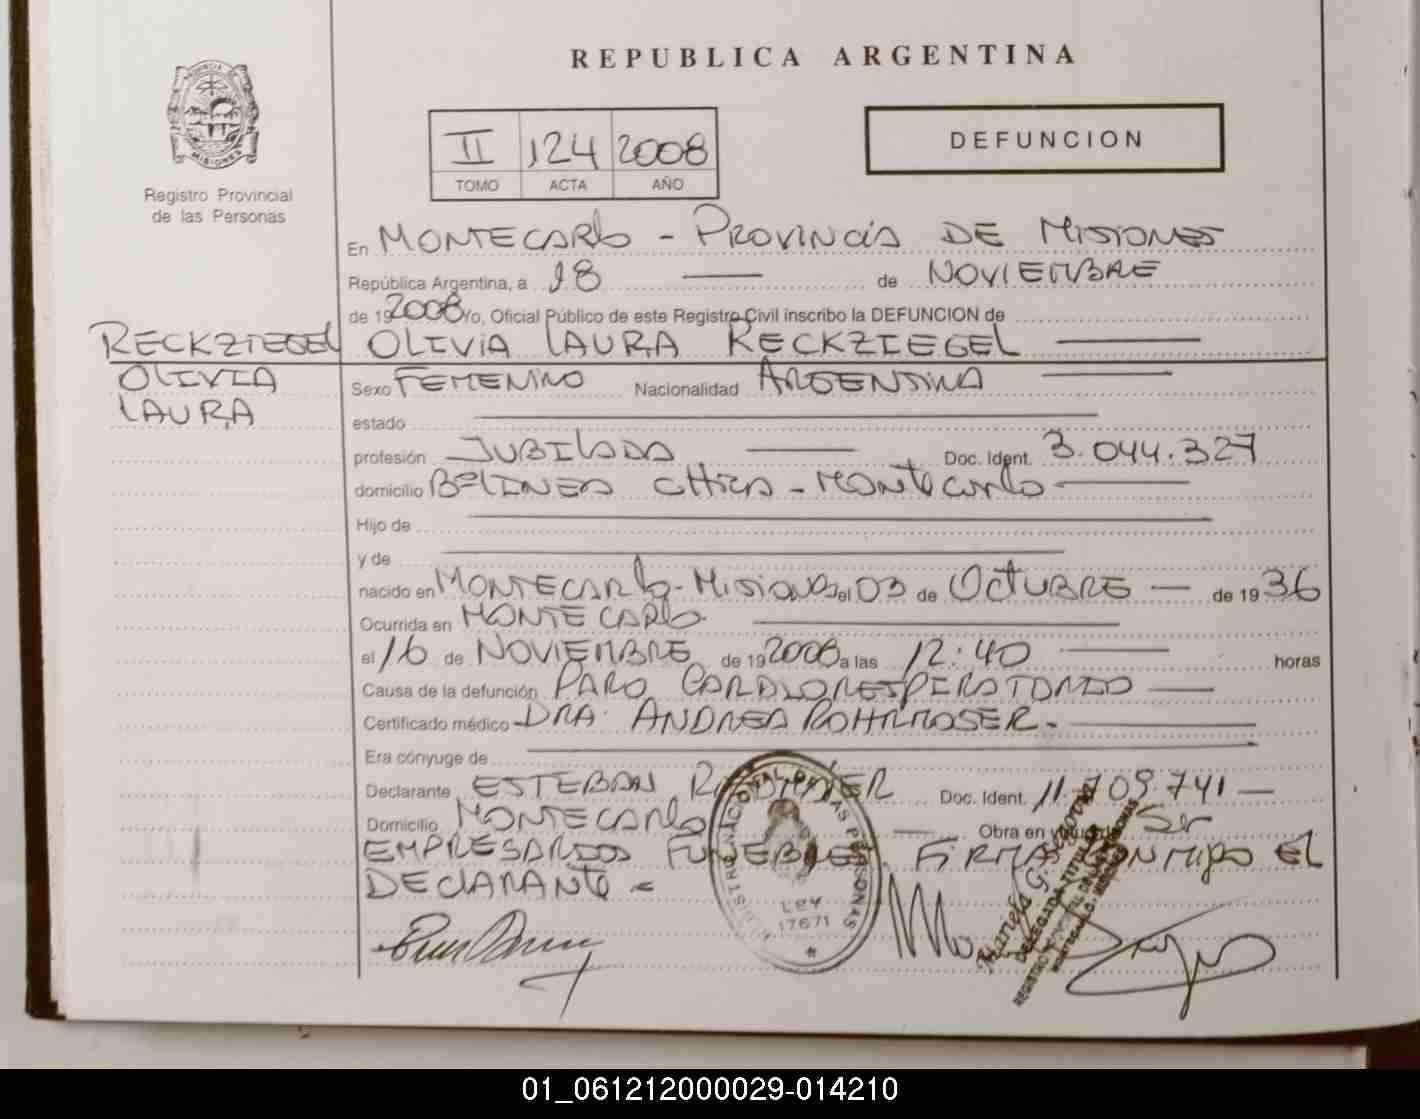 REPUBLICA ARGENTINA
PROVINCIA DE
MISIONES
Registro Provincial
de las Personas
II 124 2008
TOMO ACTA AÑO
DEFUNCION
En MONTECARLO - PROVINCIA DE MISIONES
República Argentina, a 18 de NOVIEMBRE
de 19 2008 Yo, Oficial Público de este Registro Civil inscribo la DEFUNCION de
RECKZIEGEL OLIVIA LAURA RECKZIEGEL
OLIVIA
LAURA
Sexo FEMENINO Nacionalidad ARGENTINA
estado
profesión JUBILADA Doc. Ident. 3.044.327
domicilio Bº LINEA CHICA - MONTECARLO
Hijo de
y de
nacido en MONTECARLO - MISIONES el 03 de OCTUBRE de 19 36
Ocurrida en MONTECARLO
el 16 de NOVIEMBRE de 19 2008 a las 12:40 horas
Causa de la defunción PARO CARDIORESPIRATORIO
Certificado médico DRA. ANDREA ROHRMOSER.-
Era cónyuge de
Declarante ESTEBAN Doc. Ident. 11.709.741
Domicilio MONTECARLO Obra en virtud de Ser
EMPRESARIOS FUNEBRES. FIRMA CONMIGO EL
DECLARANTE =
LEY
17671
01_061212000029-014210